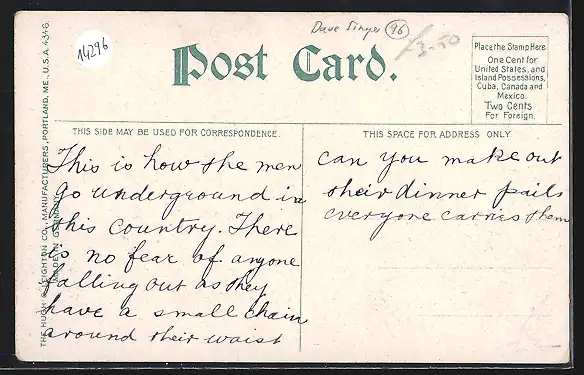 14296
Dave Singer 96
3-50
Post Card.
Place the Stamp Here
One Cent for
United States, and
Island Possessions,
Cuba, Canada and
Mexico.
Two Cents
For Foreign.
THIS SIDE MAY BE USED FOR CORRESPONDENCE.
THIS SPACE FOR ADDRESS ONLY
THE HUGH C. LEIGHTON CO., MANUFACTURERS, PORTLAND, ME., U.S.A. 4346.
MADE IN GERMANY
This is how the men
go underground in
this country. There
is no fear of anyone
falling out as they
have a small chain
around their waist
can you make out
their dinner pails
everyone carries them